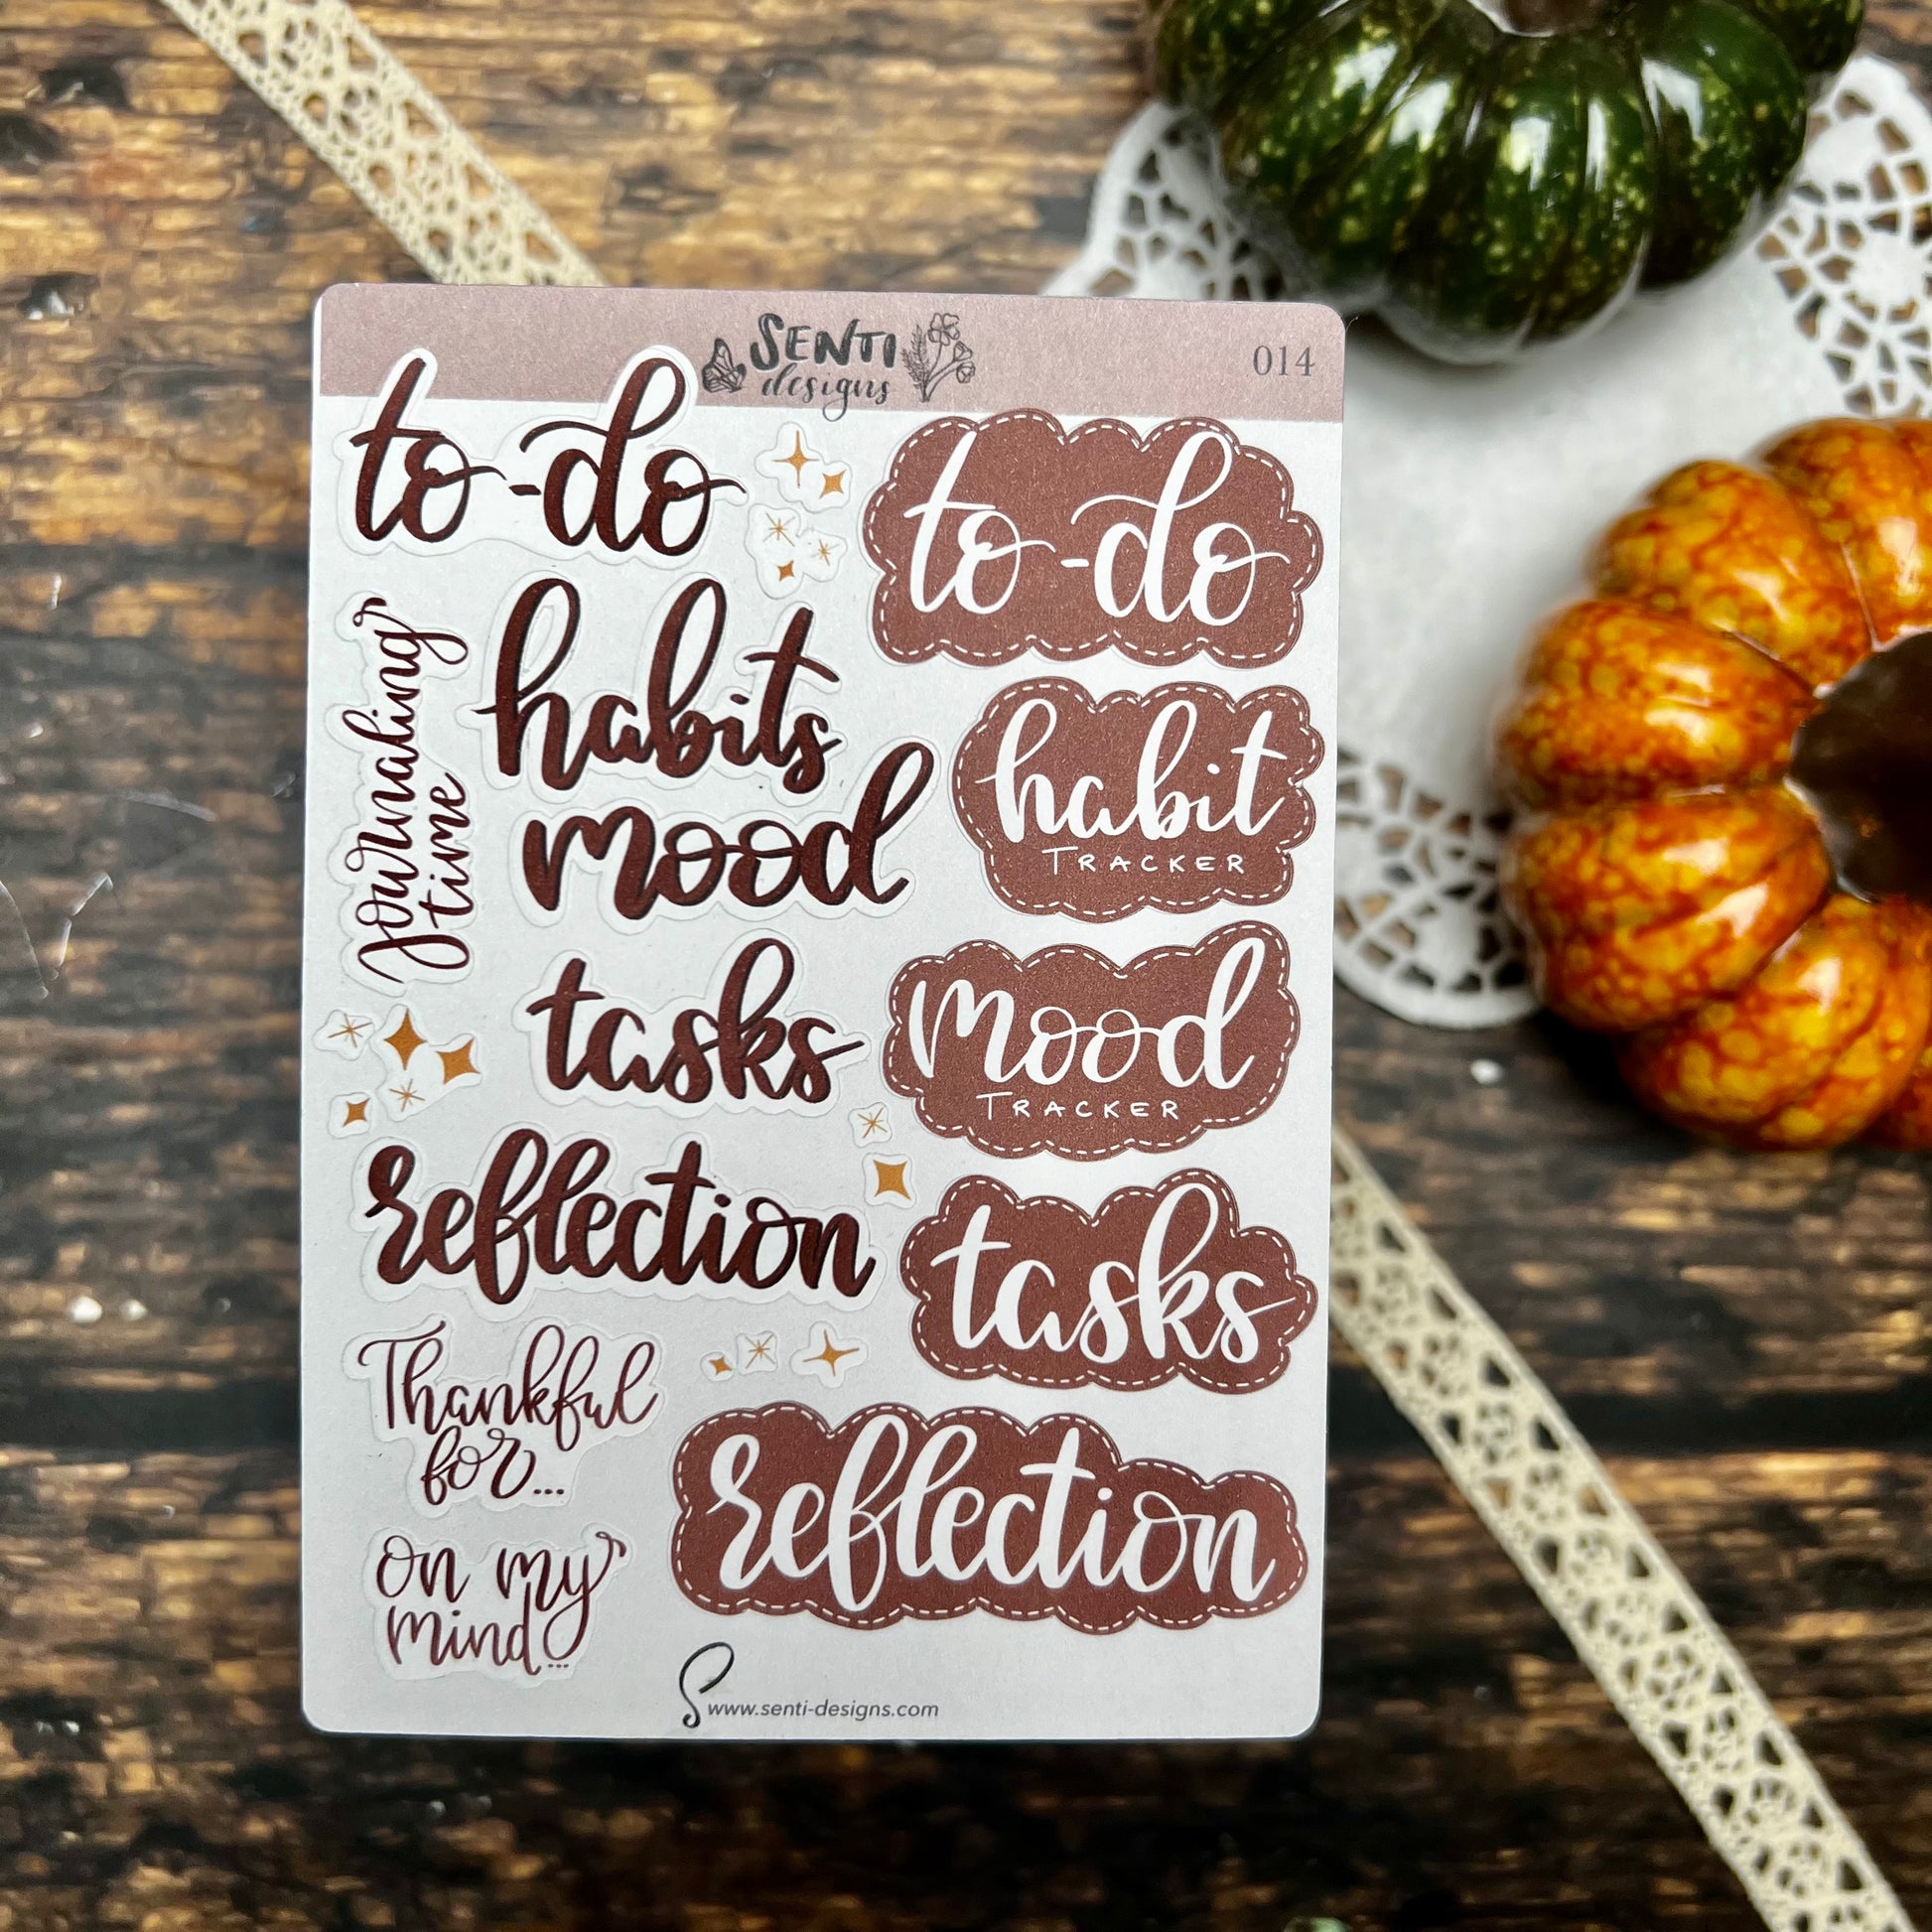 SENTI
designs
014
to-do
to-do
Journaling
time
habits
habit
TRACKER
mood
mood
TRACKER
tasks
tasks
reflection
reflection
Thankful
for...
on my
mind...
S
www.senti-designs.com